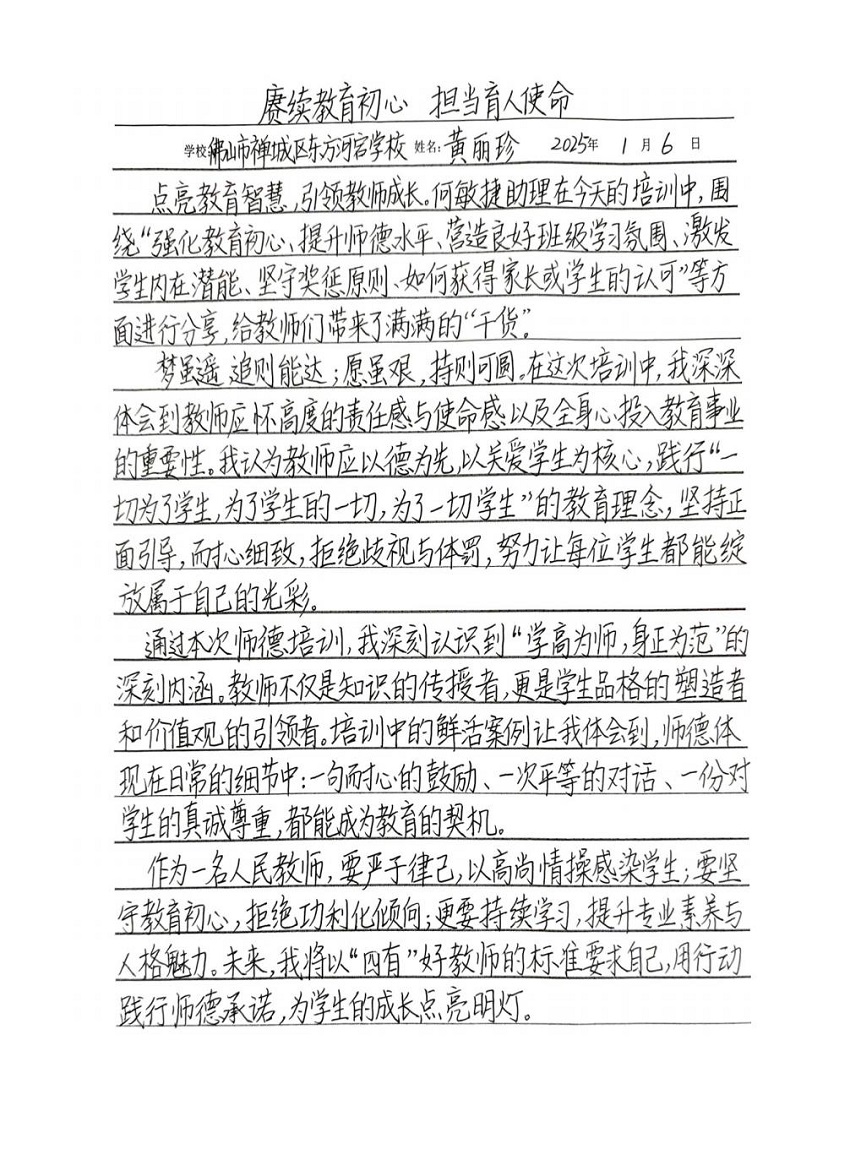 赓续教育初心 担当育人使命
学校:佛山市禅城区东方河宫学校 姓名:黄丽珍 2025年 1月 6日
点亮教育智慧,引领教师成长。何敏捷助理在今天的培训中,围
绕“强化教育初心、提升师德水平、营造良好班级学习氛围、激发
学生内在潜能、坚守奖惩原则、如何获得家长或学生的认可”等方
面进行分享,给教师们带来了满满的“干货”。
梦虽遥,追则能达;愿虽艰,持则可圆。在这次培训中,我深深
体会到教师应怀高度的责任感与使命感以及全身心投入教育事业
的重要性。我认为教师应以德为先,以关爱学生为核心,践行“一
切为了学生,为了学生的一切,为了一切学生”的教育理念,坚持正
面引导,耐心细致,拒绝歧视与体罚,努力让每位学生都能绽
放属于自己的光彩。
通过本次师德培训,我深刻认识到“学高为师,身正为范”的
深刻内涵。教师不仅是知识的传授者,更是学生品格的塑造者
和价值观的引领者。培训中的鲜活案例让我体会到,师德体
现在日常的细节中:一句耐心的鼓励、一次平等的对话、一份对
学生的真诚尊重,都能成为教育的契机。
作为一名人民教师,要严于律己,以高尚情操感染学生;要坚
守教育初心,拒绝功利化倾向;更要持续学习,提升专业素养与
人格魅力。未来,我将以“四有”好教师的标准要求自己,用行动
践行师德承诺,为学生的成长点亮明灯。